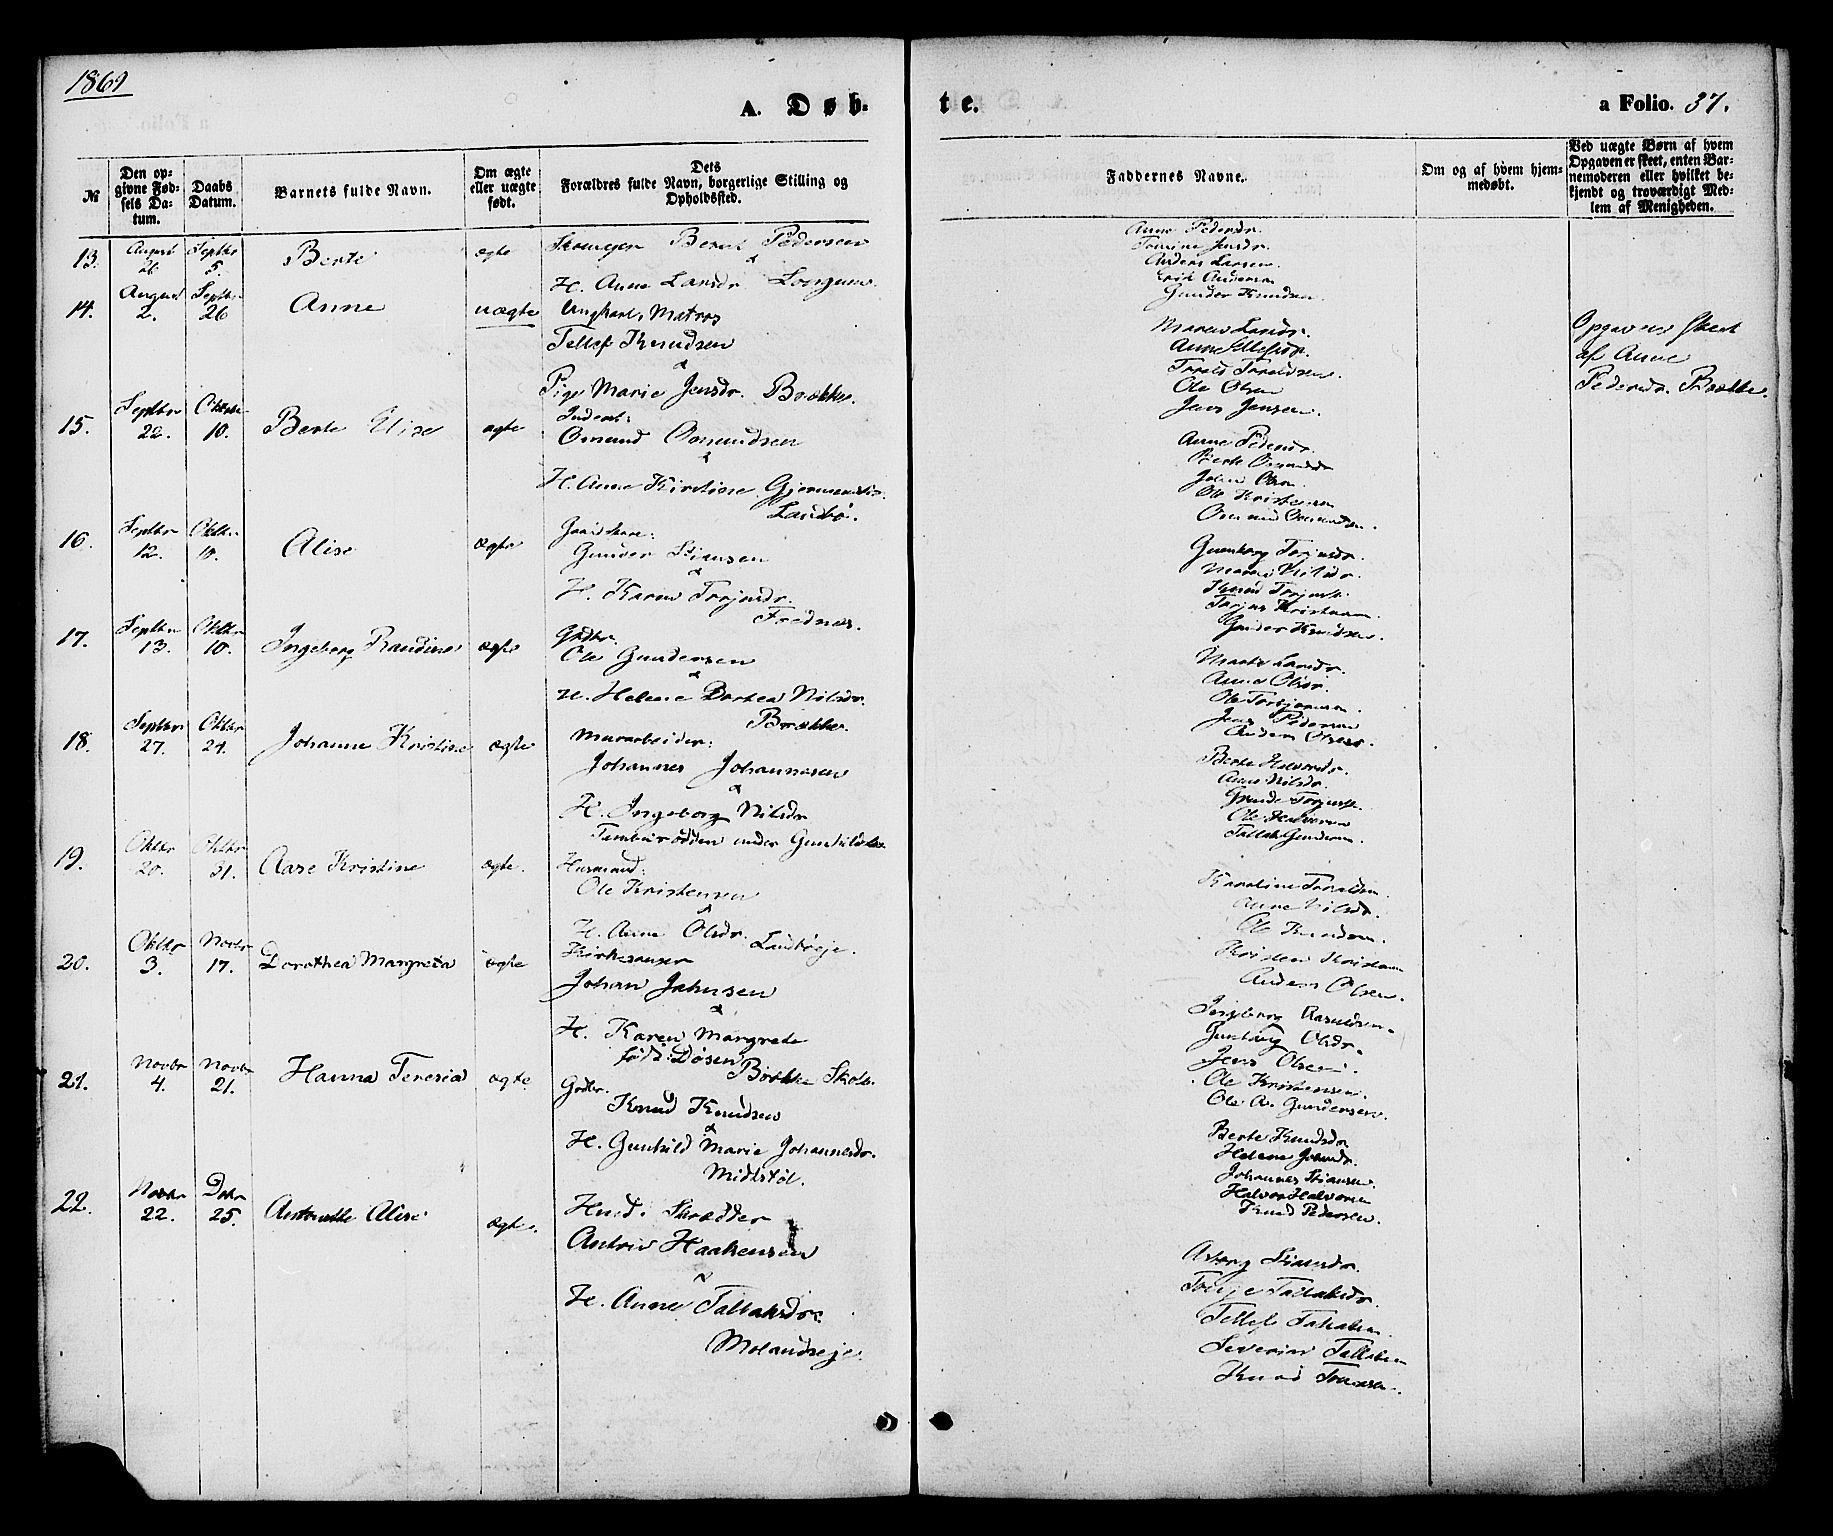 1869
A. Døb-
te.
a Folio. 37.
№
Den opgivne Fødsels Datum.
Daabs Datum.
Barnets fulde Navn.
Om ægte eller uægte født.
Dets Forældres fulde Navn, borgerlige Stilling og Opholdssted.
Faddernes Navne.
Om og af hvem hjemmedøbt.
Ved uægte Børn af hvem Opgaven er skeet, enten Barnemoderen eller hvilket bekjendt og troværdigt Medlem af Menigheden.
13.
August 26
Septbr 5.
Berte
ægte
Bernt Pedersen
&
H. Anne Larsdr Longum.
Anne Pedersdr.
Tomine Jensdr.
Anders Larsen.
Erik Andersen
Gunder Knudsen.
14.
August 2.
Septbr 26
Anne
uægte
Ungkarl, Matros
Tellef Knudsen
&
Pige Marie Jensdr. Brække.
Maren Larsdr.
Anne
Tarald Taraldsen.
Ole Olsen
Jens Jensen.
Opgaven skeet
af Anne
Pedersdr. Brække.
15.
Septbr 22.
Oktober 10.
Berte Elise
ægte
Inderst:
Osmund Osmundsen
&
H. Anne Kirstine
Landbø.
Anne Pedersdr.
Berte Osmundsdr
John Olsen
Ole Kristensen
Osmund Osmundsen.
16.
Septbr 12.
Oktbr 10.
Alise
ægte
Gunder Stiansen
&
H. Karen Torjusdr.
Frednes.
Gunborg Torjusdr.
Maren Nilsdr.
Knud Torjusen
Torjus Kristensen.
Gunder Knudsen.
17.
Septbr 13.
Oktbr 10.
Ingeborg Randine
ægte
Gbdbr.
Ole Gundersen
&
H. Helene Dorthea Nilsdr.
Brække.
Marte Larsdr.
Anne Olsdr.
Ole Torbjørnsen.
Jens Pedersen
Anders Olsen.
18.
Septbr 27.
Oktbr 24.
Johanne Kristine
ægte
Murarbeider:
Johannes Johannesen
&
H. Ingeborg Nilsdr
under
Berte Halvorsdr.
Anne Nilsdr.
Torjusen.
Ole Halvorsen
Tallak Gundersen.
19.
Oktbr 20.
Oktbr 31.
Aase Kristine
ægte.
Husmand:
Ole Kristensen
&
H. Anne Olsdr. Landbøeje.
Karoline Taraldsen.
Anne Nilsdr.
Ole Knudsen.
Kristen Kristensen
Anders Olsen.
20.
Oktbr 3.
Novbr 17.
Dorothea Margreta
ægte
Kirkesanger
Johan Jahnsen
&
H. Karen Margrete
født: Døsen
Brække Skole.
Ingeborg
Gunborg Olsdr.
Jens Olsen.
Ole Kristensen.
Ole A. Gundersen.
21.
Novbr 4.
Novbr 21.
Hanna Teresia
ægte
Gbdbr.
Knud Knudsen
&
H. Gunhild Marie Johannesdr.
Midtstøl.
Berte Knudsdr
Helene Johnsdr.
Johannes Stiansen
Halvor Halvorsen
Knud Pedersen.
22.
Novbr 22.
Decbr 25.
Antonette Alise
ægte.
Husm. Skrædder
Haakensen
&
H. Anne Tallaksdr:
Molandseje.
Asborg Stiansdr.
Tallaksdr.
Tellef Tallaksen.
Severin Tallaksen
Knud